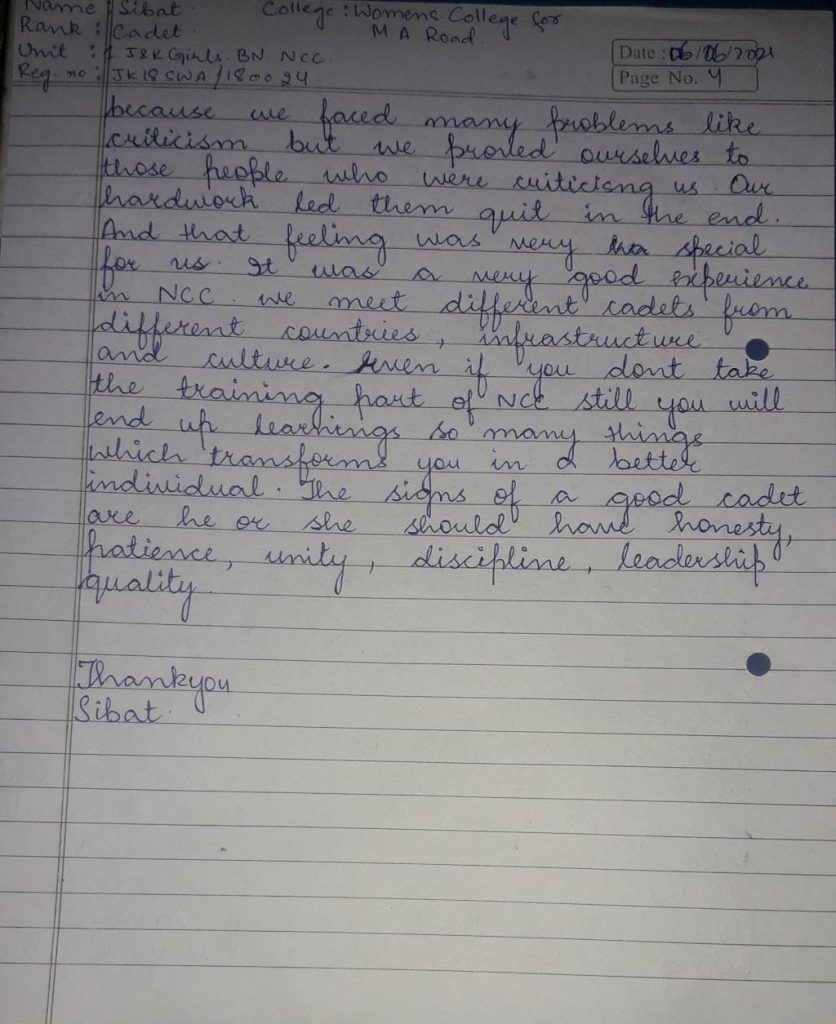 Name : Sibat. College : Womens College for
Rank : Cadet. M A Road.
Unit : 1 J&K Girls. BN. NCC.
Reg. no : JK18SWA/180024.
Date : 06/06/2021
Page No. 4
because we faced many problems like
criticism but we proved ourselves to
those people who were criticisng us. Our
hardwork led them quit in the end.
And that feeling was very special
for us. It was a very good experience
in NCC. we meet different cadets from
different countries, infrastructure
and culture. Even if you dont take
the training part of NCC still you will
end up learnings so many things
which transforms you in a better
individual. The signs of a good cadet
are he or she should have honesty,
patience, unity, discipline, leadership
quality.
Thankyou
Sibat.